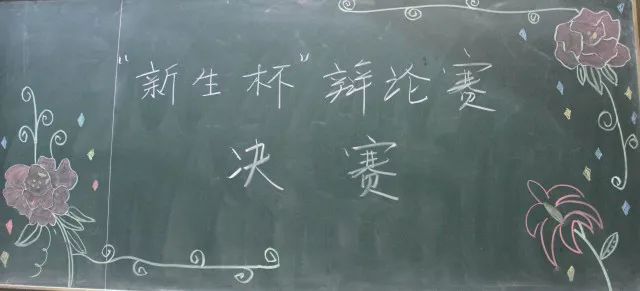 “新生杯”辩论赛
决赛